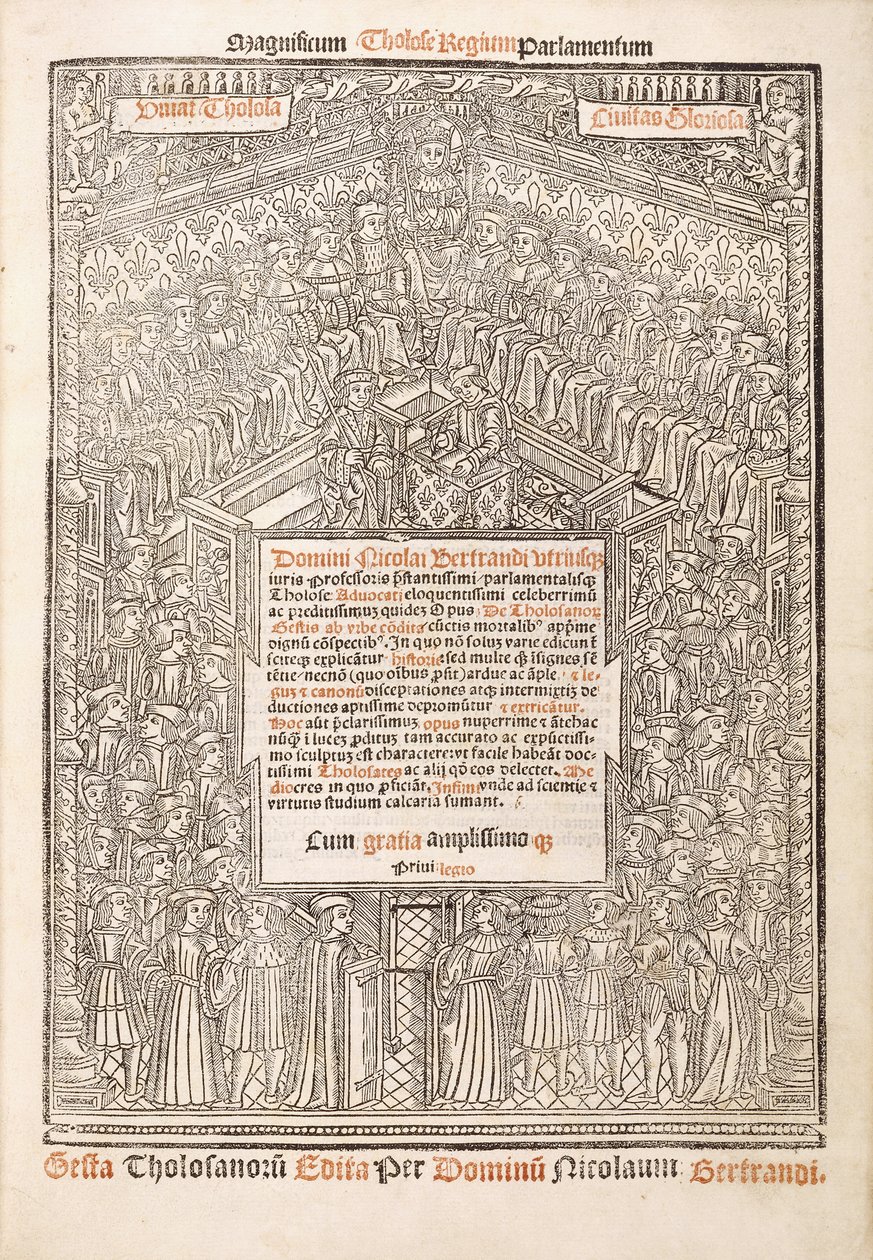 Magnificum Tholose Regium Parlamentum
Viuat Tholosa
Ciuitas Gloriosa
Domini Nicolai Bertrandi vtriusqꝫ
iuris Professoris p̄stantissimi/parlamentalisqꝫ
Tholose Aduocati eloquentissimi celeberrimū
ac preditissimuꝫ quideꝫ Opus: De Tholosanoꝝ
Gestis ab vrbe cōdita cūctis mortalibꝰ app̄me
dignū cōspectibꝰ. In quo nō soluꝫ varie edicun t̄
sciteqꝫ explicātur historie: sed multe qꝫ īsignes sē
tētie/necnō (quo oībus ꝓsit) ardue ac āple / ⁊ le-
guꝫ ⁊ canonū disceptationes atqꝫ intermixtiꝫ de
ductiones aptissime depromūtur ⁊ extricātur.
Hoc aūt p̄clarissimuꝫ opus nuperrime ⁊ āte hac
nūqꝫ i luceꝫ ꝓdituꝫ tam accurato ac expūctissi-
mo sculptuꝫ est charactere: vt facile habeāt doc-
tissimi Tholosates ac alij qđ eos delectet. Me
diocres in quo ꝓficiāt. Infimi vnde ad scientie ⁊
virtutis studium calcaria sumant.
Cum gratia amplissimo qꝫ
Priuilegio
Gesta Tholosanorū Edita Per Dominū Nicolaum Bertrandi.